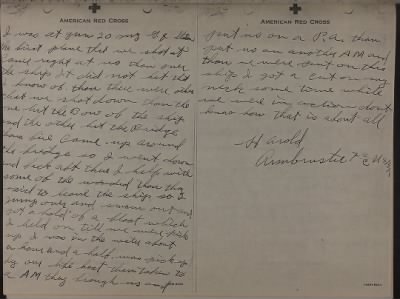 AMERICAN RED CROSS
I was at gun 20 mg
the first plane that we shot at
came right at us than over
the ship it did not get hit
I know of than there were other
that we shot down than the
one hit the bow of the ship
and the other hit the Bridge
came up around
the bridge so I went down
and back aft than I help with
some of the wounded than they
said to leave the ship so I
jump over and swam out and
got a hold of a float which
I held on till we were pick
up I was in the water about
an hour and a half, was pick up
by our life boat then taken to
a AM they brough us and
AMERICAN RED CROSS
put us on a P.C. than
put us on another AM and
than we were sent on this
ship I got a cut on my
neck some time while
we were in action dont
know how that is about all
Harold